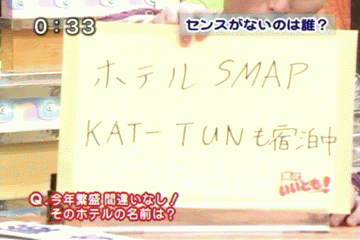 0:33 センスがないのは誰?
ホテル SMAP
KAT-TUNも宿泊中
Q.今年繁盛間違いなし!
そのホテルの名前は?
笑って
いいとも!